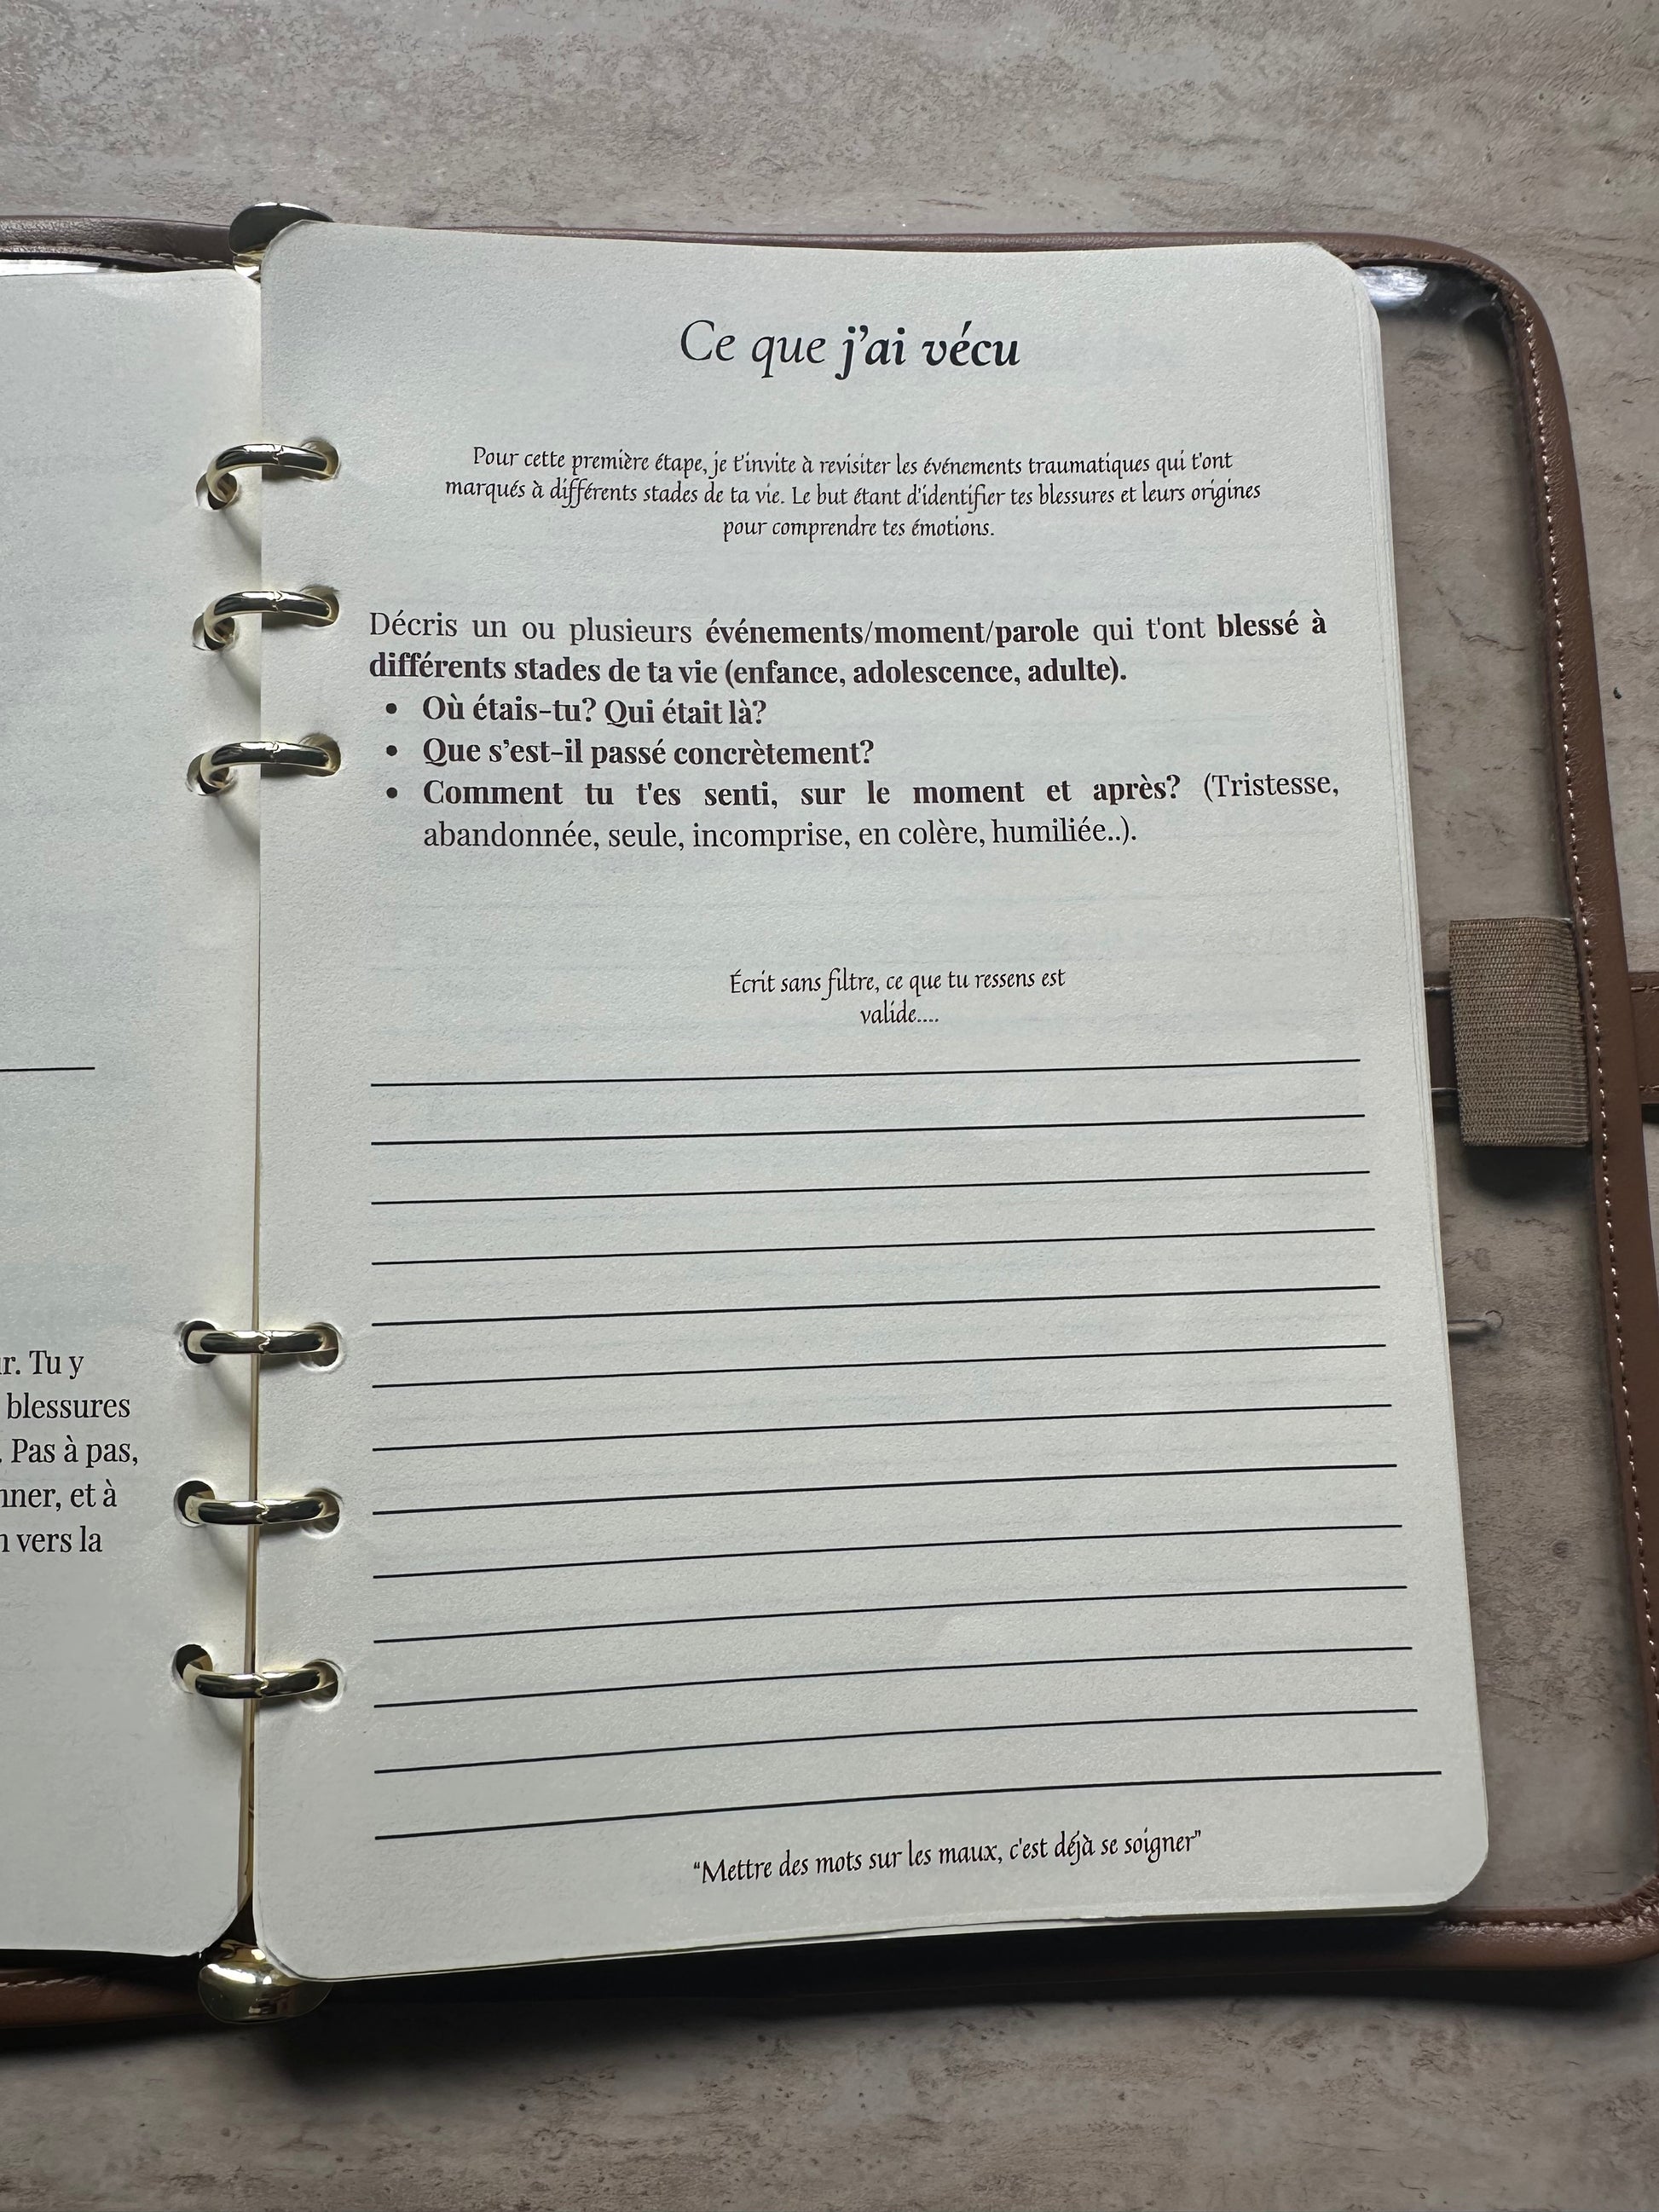 Ce que j'ai vécu
Pour cette première étape, je t'invite à revisiter les événements traumatiques qui t'ont
marqués à différents stades de ta vie. Le but étant d'identifier tes blessures et leurs origines
pour comprendre tes émotions.
Décris un ou plusieurs événements/moment/parole qui t'ont blessé à
différents stades de ta vie (enfance, adolescence, adulte).
• Où étais-tu? Qui était là?
• Que s'est-il passé concrètement?
• Comment tu t'es senti, sur le moment et après? (Tristesse,
abandonnée, seule, incomprise, en colère, humiliée..).
Écrit sans filtre, ce que tu ressens est
valide....
"Mettre des mots sur les maux, c'est déjà se soigner"
Tu y
blessures
Pas à pas,
et à
vers la